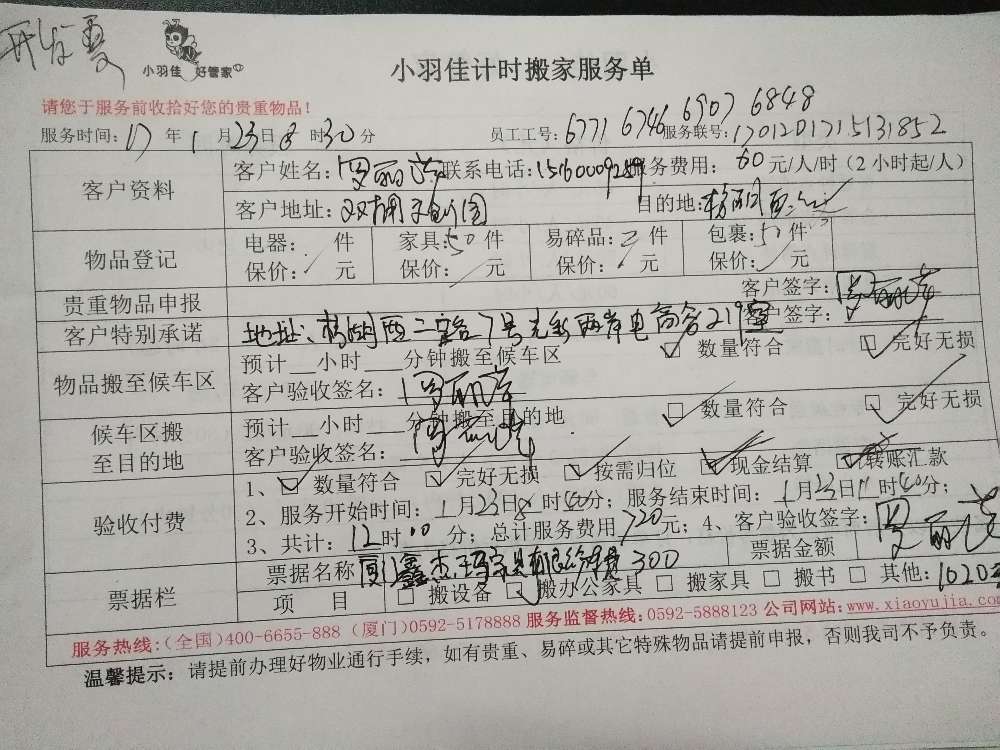 小羽佳 好管家
小羽佳计时搬家服务单
请您于服务前收拾好您的贵重物品！
服务时间：17 年 1 月 23 日 8 时 30 分 员工工号：6771 6746 6907 6848 服务联号：1701201715131852
客户资料 客户姓名：罗丽萍 联系电话： 服务费用：60 元/人/时（2 小时起/人）
客户地址： 目的地：
物品登记 电器： 件 家具：50 件 易碎品：2 件 包裹：50 件
保价：/ 元 保价：/ 元 保价：/ 元 保价：/ 元
贵重物品申报 客户签字：罗丽萍
客户特别承诺 地址： 7号 两岸电商 219室 客户签字：
物品搬至候车区 预计__小时___分钟搬至候车区 ☑ 数量符合 ☑ 完好无损
客户验收签名：罗丽萍
候车区搬至目的地 预计__小时___分钟搬至目的地 ☑ 数量符合 ☑ 完好无损
客户验收签名：
验收付费 1、☑ 数量符合 ☑ 完好无损 ☑ 按需归位 ☑ 现金结算 ☑ 转账汇款
2、服务开始时间：1月23日8时40分；服务结束时间：1月23日11时40分；
3、共计：12时00分；总计服务费用720元；4、客户验收签字：罗丽萍
票据栏 票据名称 300 票据金额
项 目 □ 搬设备 ☑ 搬办公家具 □ 搬家具 □ 搬书 □ 其他：1020元
服务热线：（全国）400-6655-888（厦门）0592-5178888 服务监督热线：0592-5888123 公司网站：www.xiaoyujia.com
温馨提示：请提前办理好物业通行手续，如有贵重、易碎或其它特殊物品请提前申报，否则我司不予负责。